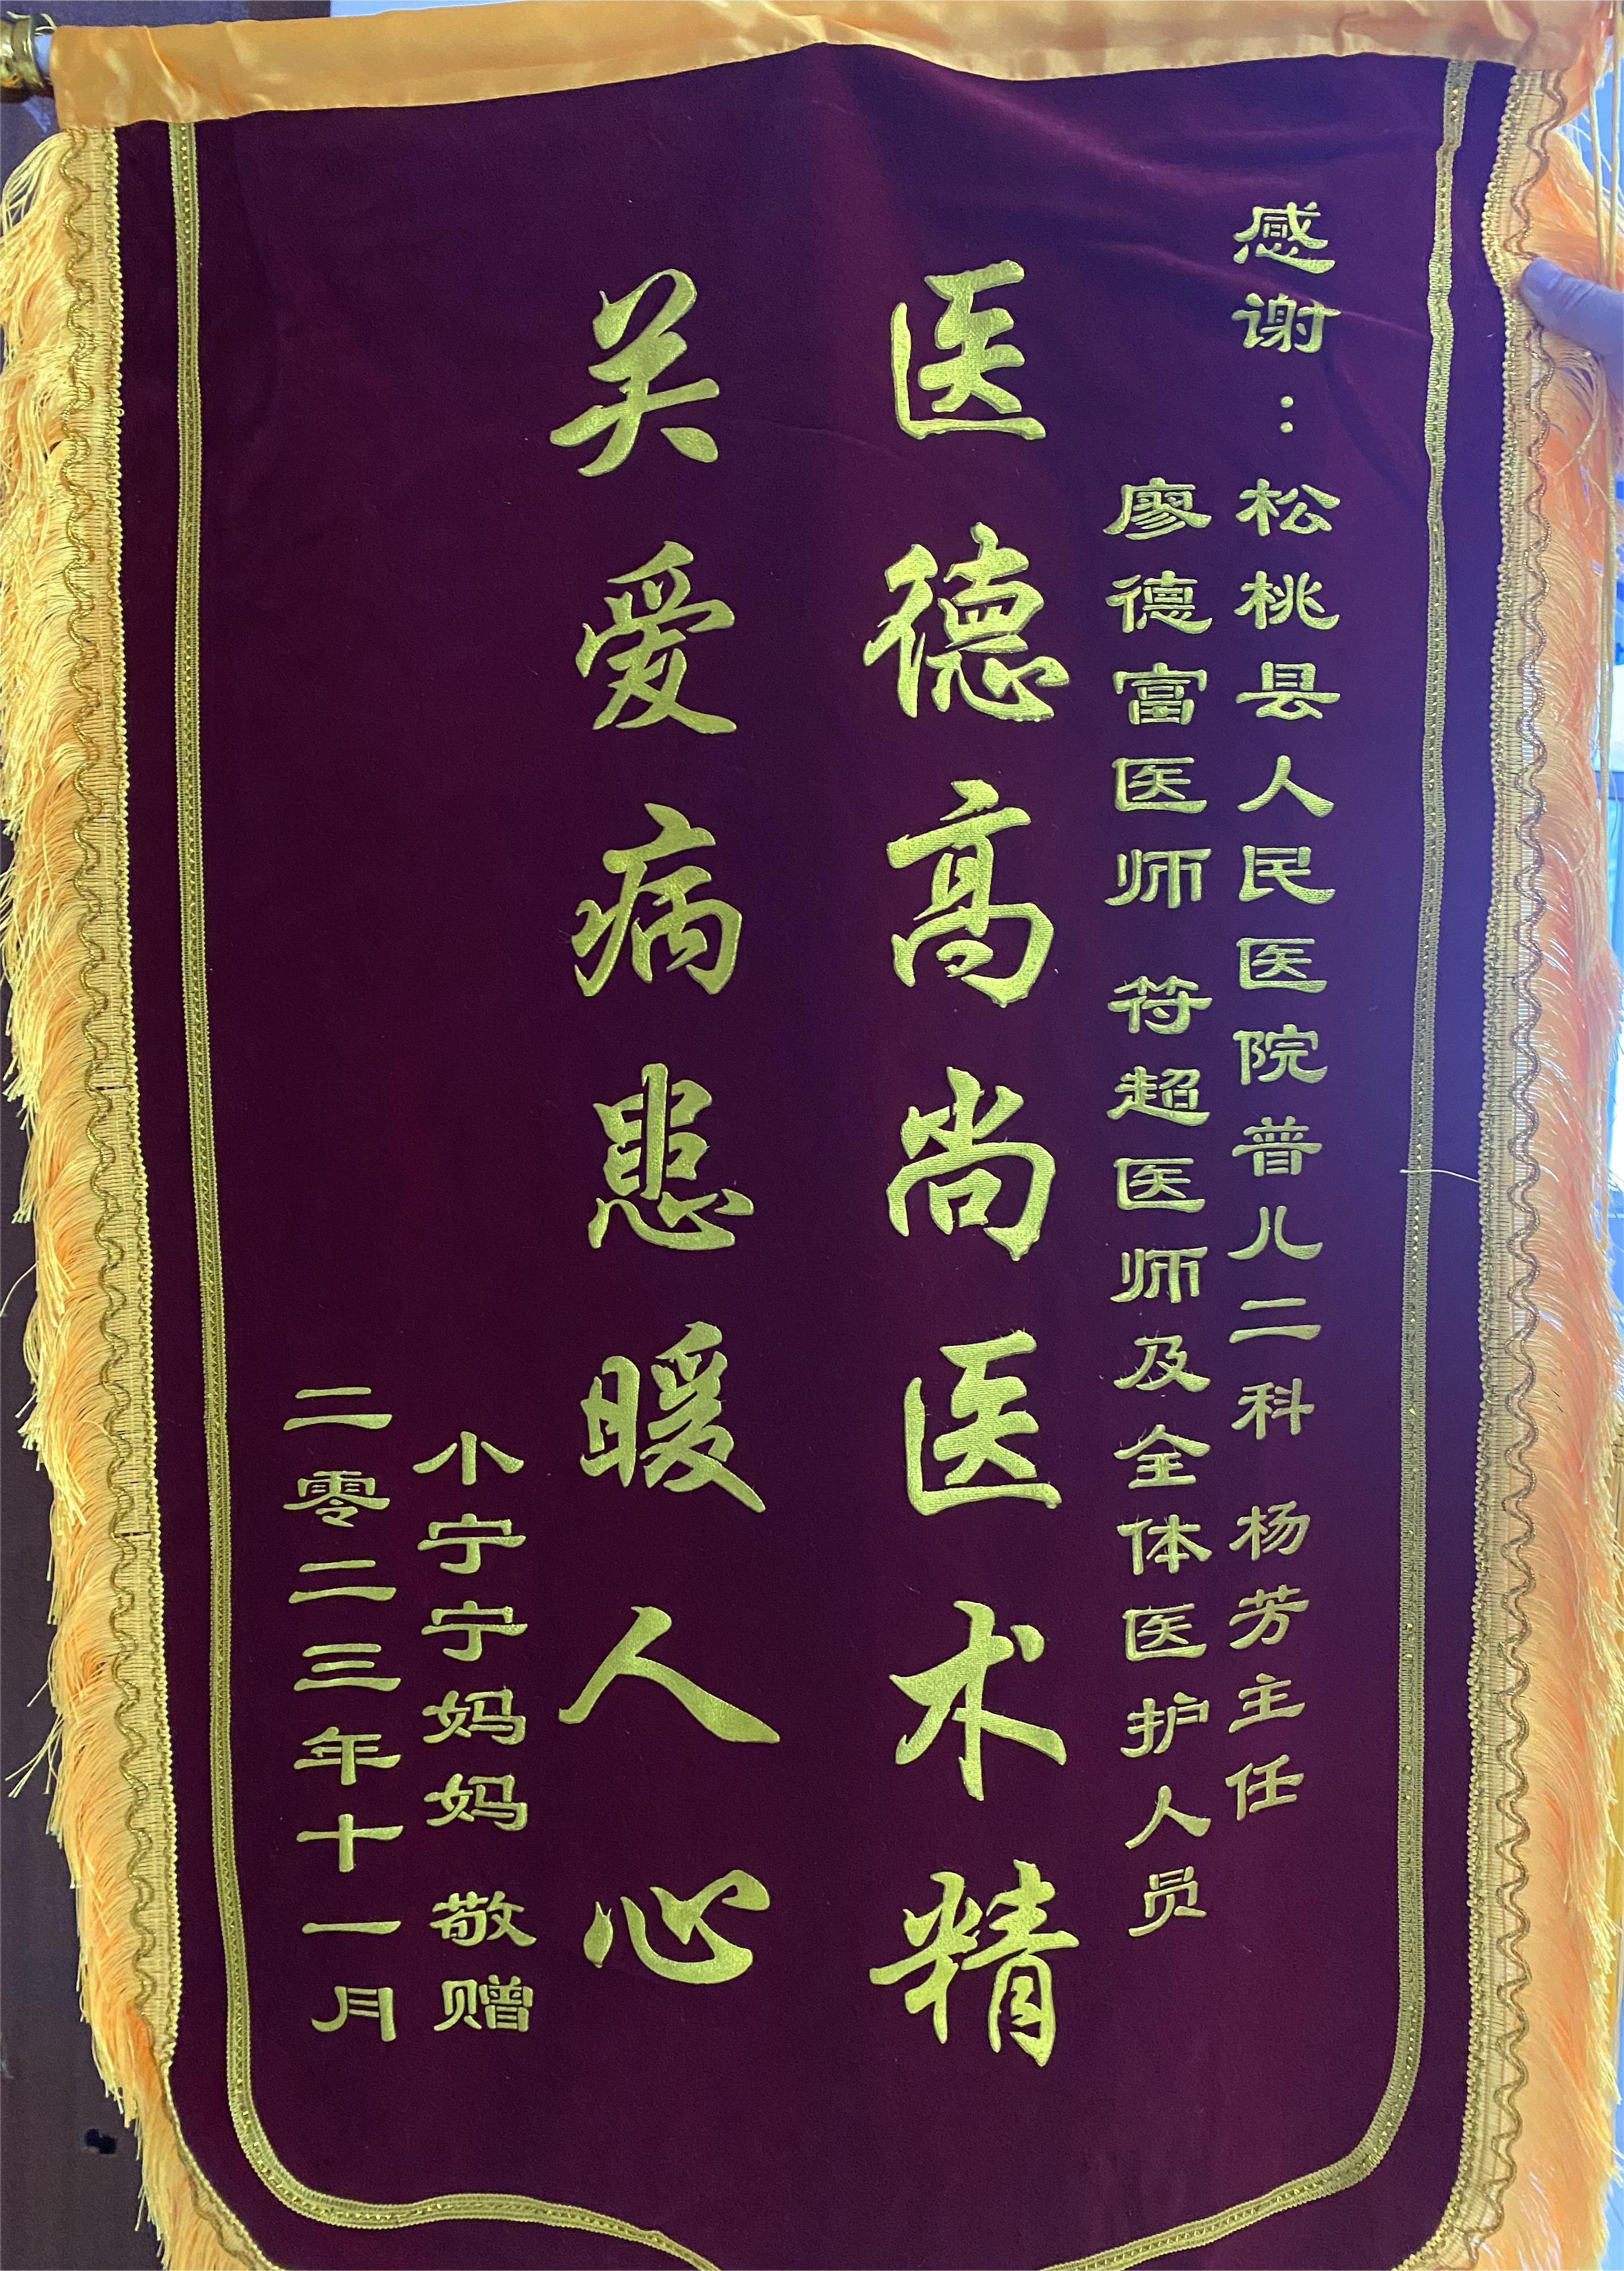 感谢：松桃县人民医院普儿二科 杨芳主任
廖德富医师 符超医师及全体医护人员
医德高尚医术精
关爱病患暖人心
小宁宁妈妈 敬赠
二零二三年十一月